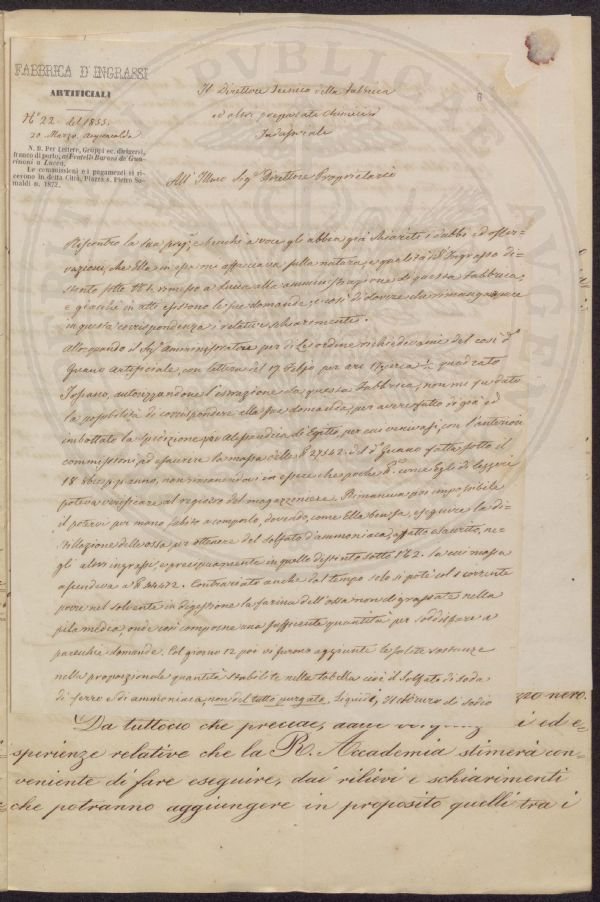 FABBRICA D'INGRASSI
ARTIFICIALI
N.° 22 del 1855.
20. Marzo. Acquacalda
N. B. Per Lettere, Gruppi ec. dirigersi,
franco di porto, ai Fratelli Baroni de Gua-
rinoni a Lucca.
Le commissioni e i pagamenti si ri-
cevono in detta Città, Piazza s. Pietro So-
maldi n. 1872.
6
Il Direttore Tecnico della Fabbrica
ed altri preparati Chimici
Industriale
All' Illmo Sig.r Direttore Proprietario
Riscontro la sua benchè a voce gli abbia già chiariti i dubbi ed osser-
vazioni, che Ella in essa mi affacciava sulla natura e qualità dell'Ingrasso di-
stinto sotto rimesso a Lucca alla amministrazione di questa Fabbrica,
e giacchè in atti esistono le sue domande, è così di dovere che rimanga pure
in questa corrispondenza i relativi schiarimenti.
Allorquando il Sig.r Amministratore per di Lei ordine richiedevami del così d.°
Guano Artificiale, con lettera del 17 per quadrato
Toscano, autorizzandone l'estrazione da questa Fabbrica, non mi fu dato
la possibilità di corrispondere alla sua domanda, per aver fatto di già ed
imbottato la spedizione per Alessandria di Egitto, per cui con l'anteriori
commissioni ad esaurire la massa delle 27542. del d.° Guano fatta sotto il
18 anno, non rimanendovi ad essere che poche come Egli di leggeri
poteva verificare al registro del magazziniere. Rimaneva poi impossibile
il potervi por mano subito a comporlo, dovendo, come Ella ben sa, eseguire la di-
stillazione delle ossa per ottenere del solfato d'ammoniaca, affatto esaurito, ne-
gli altri ingrassi, e precipuamente in quello distinto sotto N.° 2. la cui massa
ascendeva a 44472. Contrariato anche dal tempo solo si potè col 1 corrente
porre nel solvente in digestione la farina dell'ossa non digrassate nella
pila media, onde così comporne una sufficiente quantità per soddisfare a
parecchie domande. Col giorno 12 poi vi furono aggiunte le solite sostanze
nella proporzionale quantità stabilite nella tabella cioè il Solfato di soda
di ferro e di ammoniaca, non del tutto purgato, liquidi, di Sodio
zzo nero.
Da tuttociò che i ed e-
sperienze relative che la R. Accademia stimerà con-
veniente di fare eseguire, dai rilievi e schiarimenti
che potranno aggiungere in proposito quelli tra i